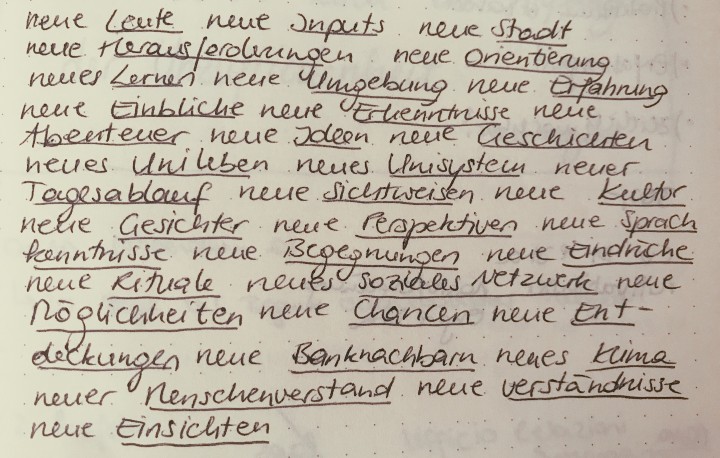 neue Leute neue Inputs neue Stadt
neue Herausforderungen neue Orientierung
neues Lernen neue Umgebung neue Erfahrung
neue Einbliche neue Erkenntnisse neue
Abenteuer neue Ideen neue Geschichten
neues Unileben neues Unisystem neuer
Tagesablauf neue Sichtweisen neue Kultur
neue Gesichter neue Perspektiven neue Sprach
kenntnisse neue Begegnungen neue Eindrücke
neue Rituale neues soziales Netzwerk neue
Möglichkeiten neue Chancen neue Ent-
deckungen neue Banknachbarn neues Klima
neuer Menschenverstand neue Verständnisse
neue Einsichten